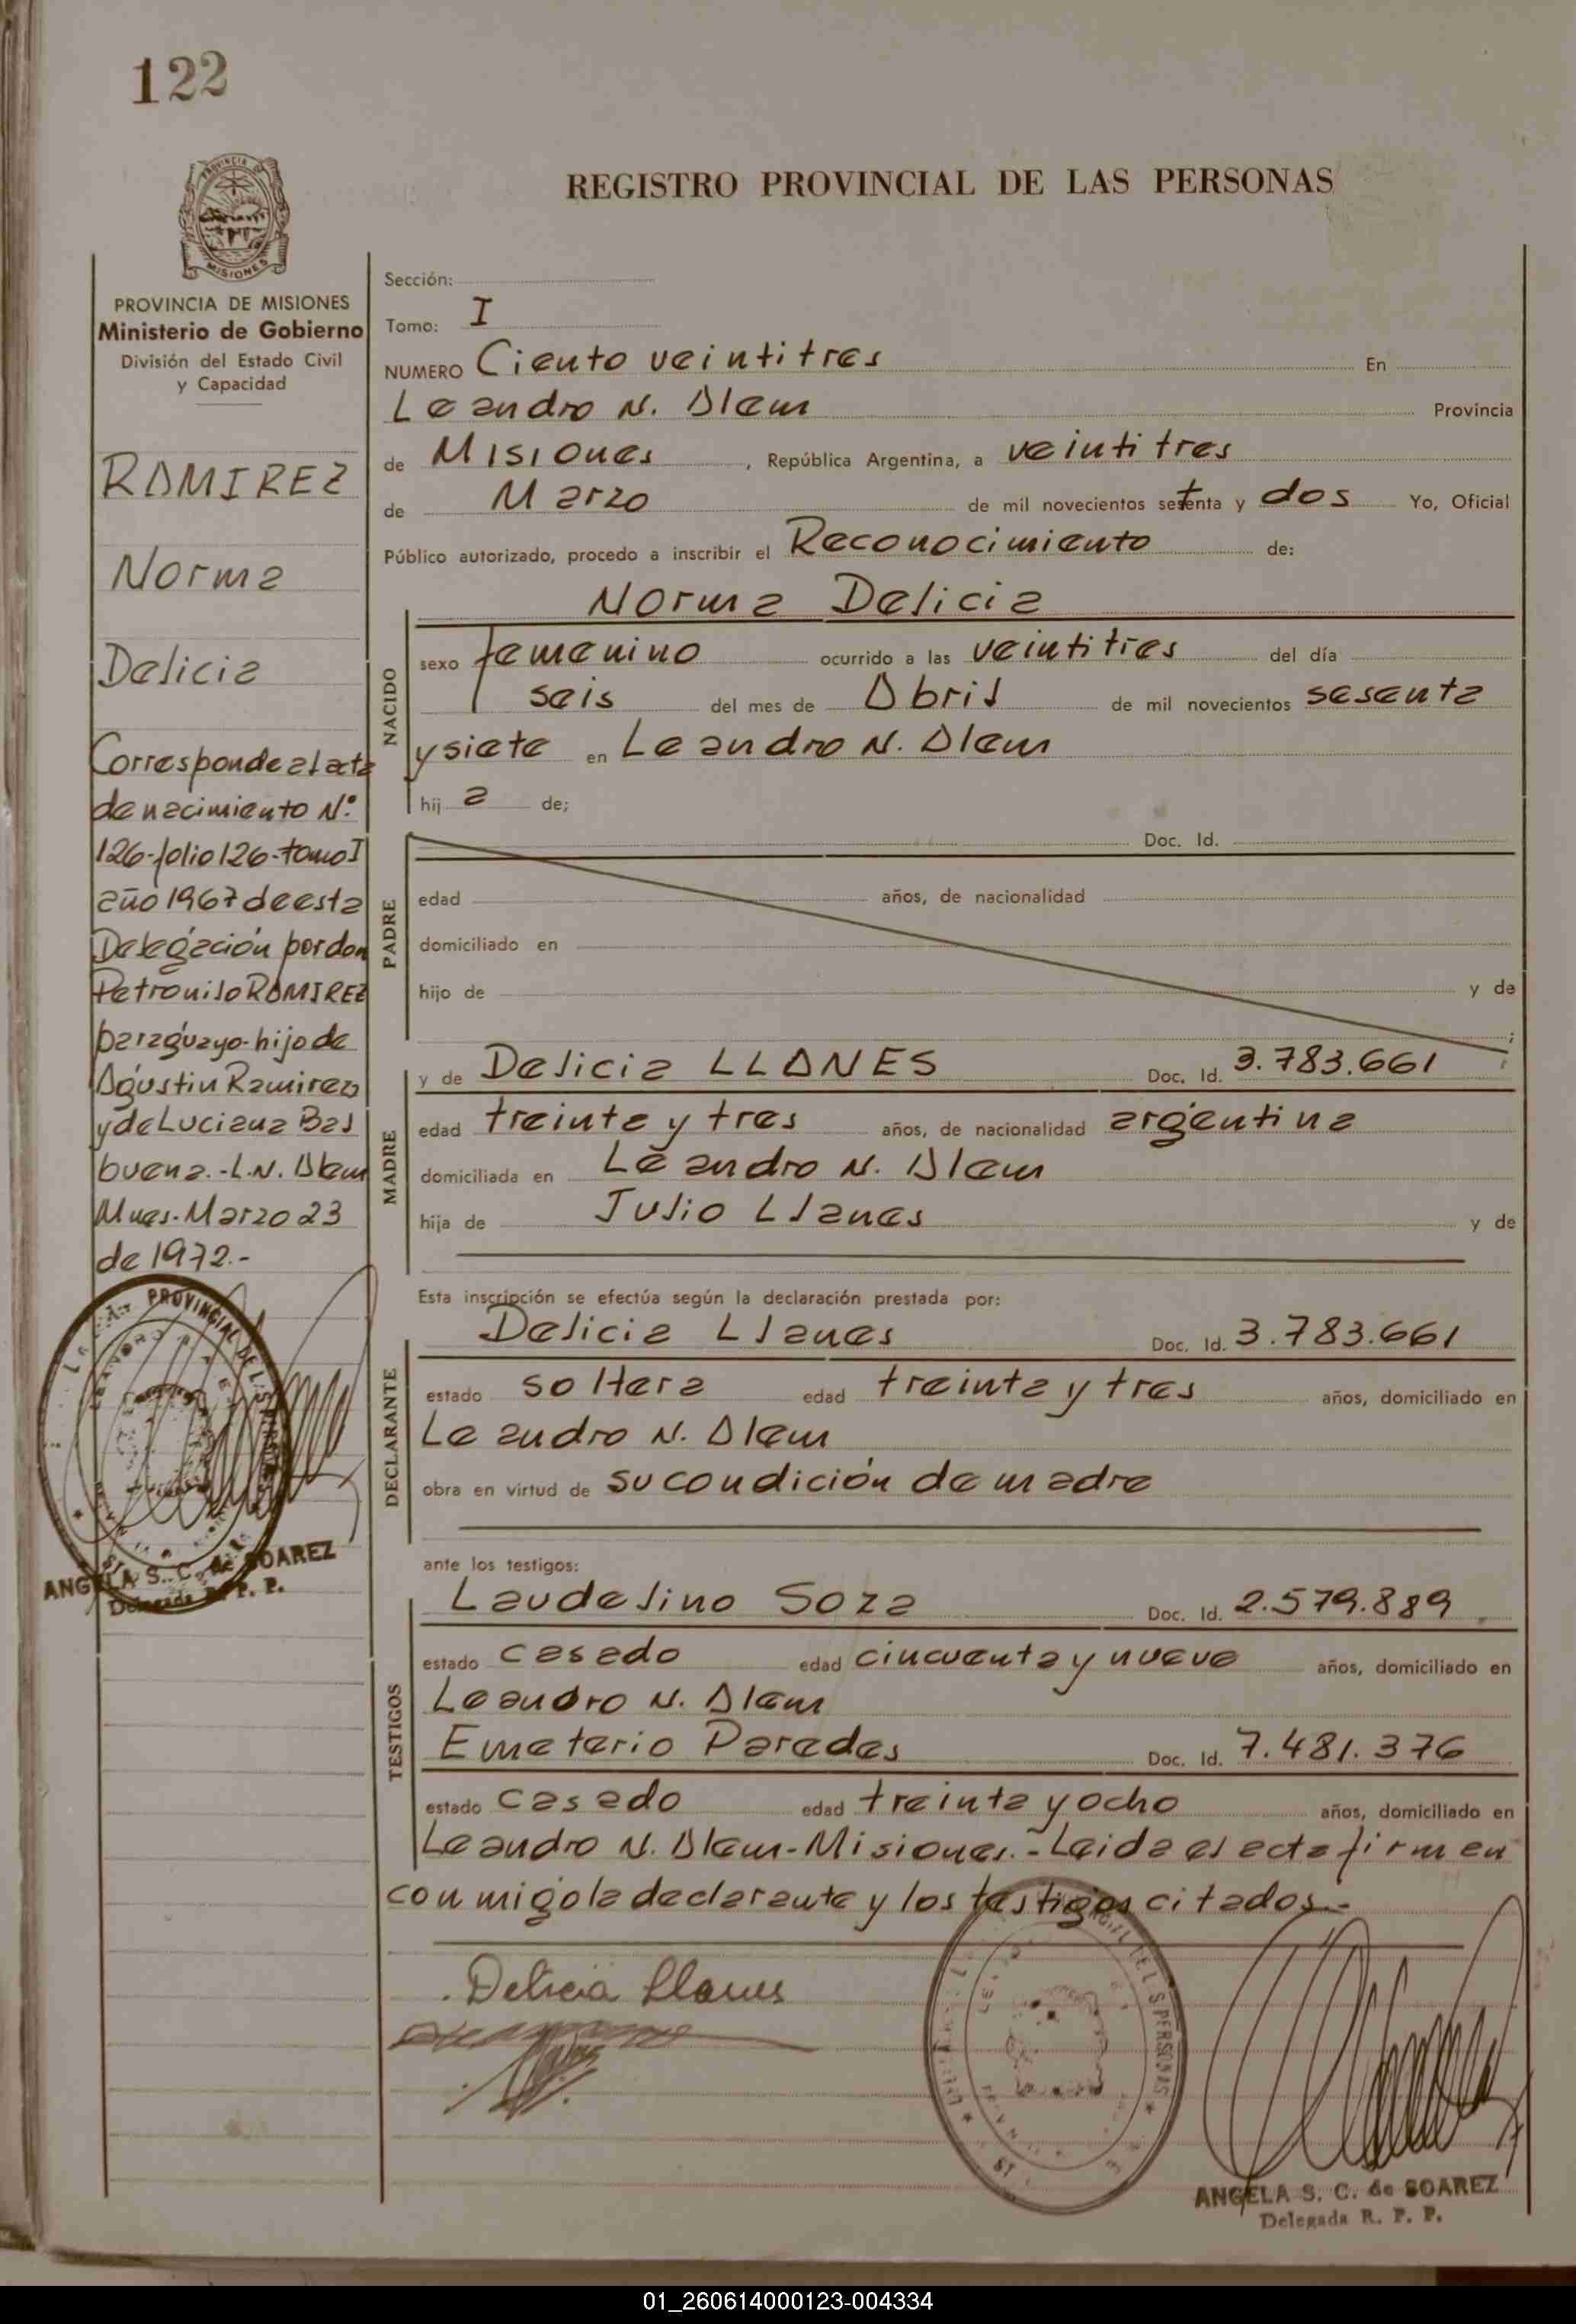 122
PROVINCIA DE
MISIONES
PROVINCIA DE MISIONES
Ministerio de Gobierno
División del Estado Civil
y Capacidad
RAMIREZ
Norma
Delicia
Corresponde al acta
de nacimiento N.º
126-folio 126-tomo I
año 1967 de esta
Delegación por don
Petronilo RAMIREZ
paraguayo-hijo de
Agustin Ramirez
y de Luciana Bal
buena.-L.N. Alem
Mnes.-Marzo 23
de 1972.-
PROVINCIAL DE LAS PERSONAS
ANGELA S. C. de SOAREZ
Delegada R. P. P.
REGISTRO PROVINCIAL DE LAS PERSONAS
Sección:
Tomo: I
NUMERO Ciento veintitres En
Leandro N. Alem Provincia
de Misiones, República Argentina, a veintitres
de Marzo de mil novecientos setenta y dos Yo, Oficial
Público autorizado, procedo a inscribir el Reconocimiento de:
Norma Delicia
NACIDO
sexo femenino ocurrido a las veintitres del día
seis del mes de Abril de mil novecientos sesenta
y siete en Leandro N. Alem
hij a de;
PADRE
Doc. Id.
edad años, de nacionalidad
domiciliado en
hijo de y de
;
MADRE
y de Delicia LLANES Doc. Id. 3.783.661
edad treinta y tres años, de nacionalidad argentina
domiciliada en Leandro N. Alem
hija de Julio Llanes y de
Esta inscripción se efectúa según la declaración prestada por:
DECLARANTE
Delicia Llanes Doc. Id. 3.783.661
estado soltera edad treinta y tres años, domiciliado en
Leandro N. Alem
obra en virtud de su condición de madre
ante los testigos:
TESTIGOS
Laudelino Soza Doc. Id. 2.579.889
estado casado edad cincuenta y nueve años, domiciliado en
Leandro N. Alem
Emeterio Paredes Doc. Id. 7.481.376
estado casado edad treinta y ocho años, domiciliado en
Leandro N. Alem-Misiones.-Leida el acta firman
conmigo la declarante y los testigos citados.-
Delicia Llanes
PERSONAS
ANGELA S. C. de SOAREZ
Delegada R. P. P.
01_260614000123-004334